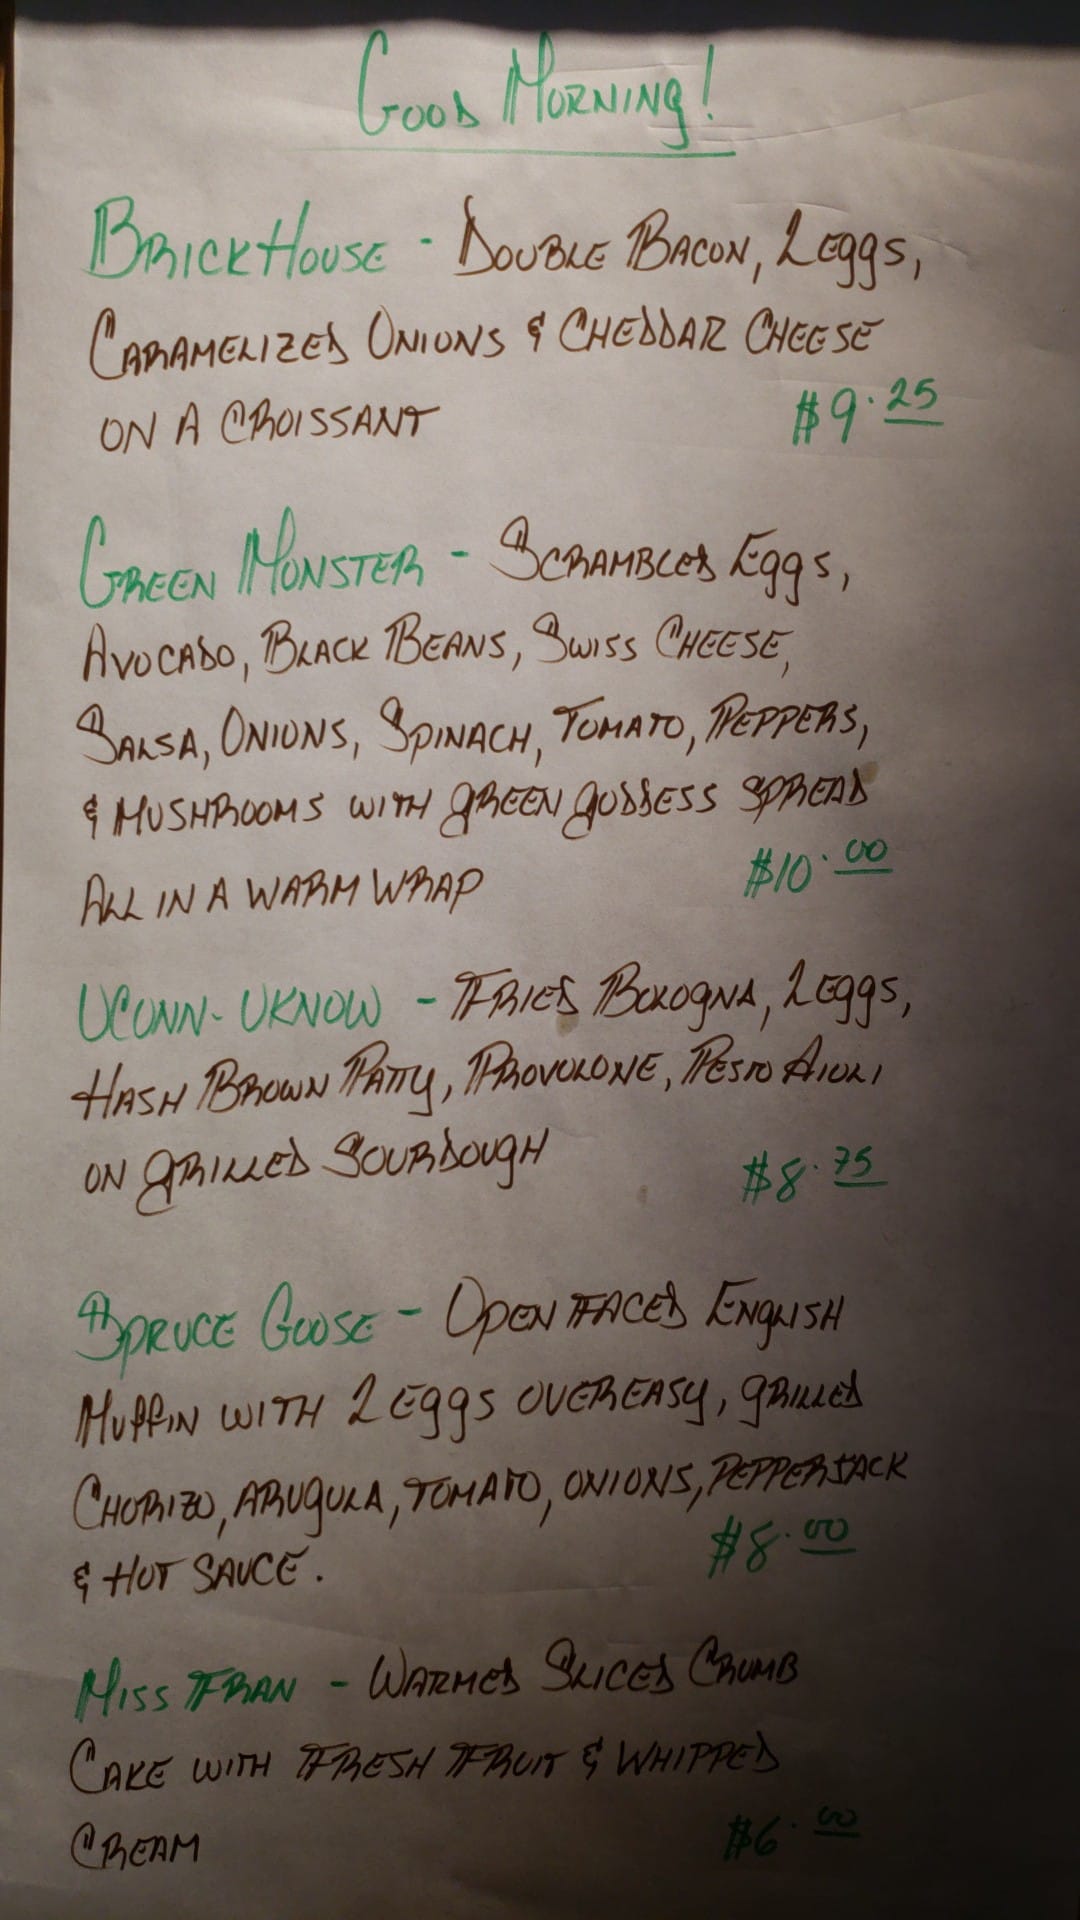 Good Morning!
BrickHouse - Double Bacon, 2 eggs,
Caramelized Onions & Cheddar Cheese
on a Croissant $9.25
Green Monster - Scrambled Eggs,
Avocado, Black Beans, Swiss Cheese,
Salsa, Onions, Spinach, Tomato, Peppers,
& Mushrooms with Green Goddess Spread
All in a Warm Wrap $10.00
UCONN-UKNOW - Fried Bologna, 2 eggs,
Hash Brown Patty, Provolone, Pesto Aioli
on Grilled Sourdough $8.75
Spruce Goose - Open Faced English
Muffin with 2 eggs overeasy, grilled
Chorizo, arugula, tomato, onions, pepperjack
& Hot Sauce. $8.00
Miss Fran - Warmed Sliced Crumb
Cake with Fresh Fruit & Whipped
Cream $6.00